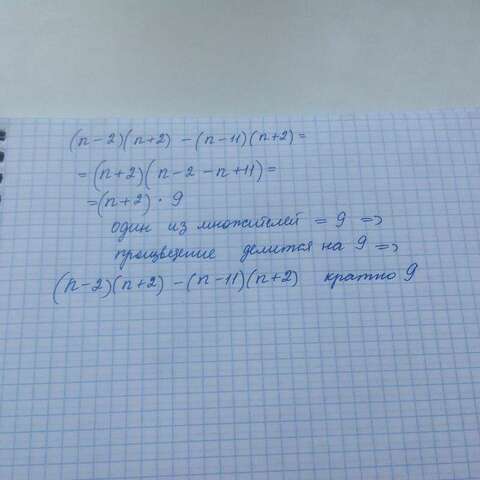 (n-2)(n+2) - (n-11)(n+2) =
= (n+2)(n-2-n+11) =
= (n+2) · 9
один из множителей = 9 =>
произведение делится на 9 =>
(n-2)(n+2) - (n-11)(n+2) кратно 9